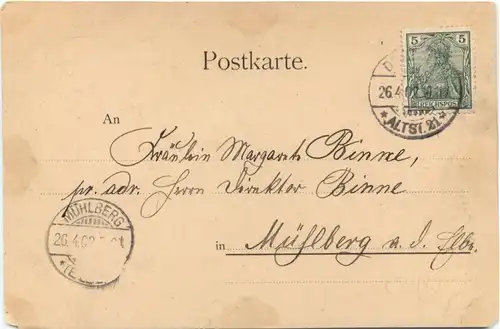 Postkarte.
5 5
REICHSPOST
26.4.02
*ALTST. 21*
An
Fräulein Margarete Binne,
pr. adr. Herrn Direktor Binne
MÜHLBERG
26.4.02
in Mühlberg a. d. Elbe.